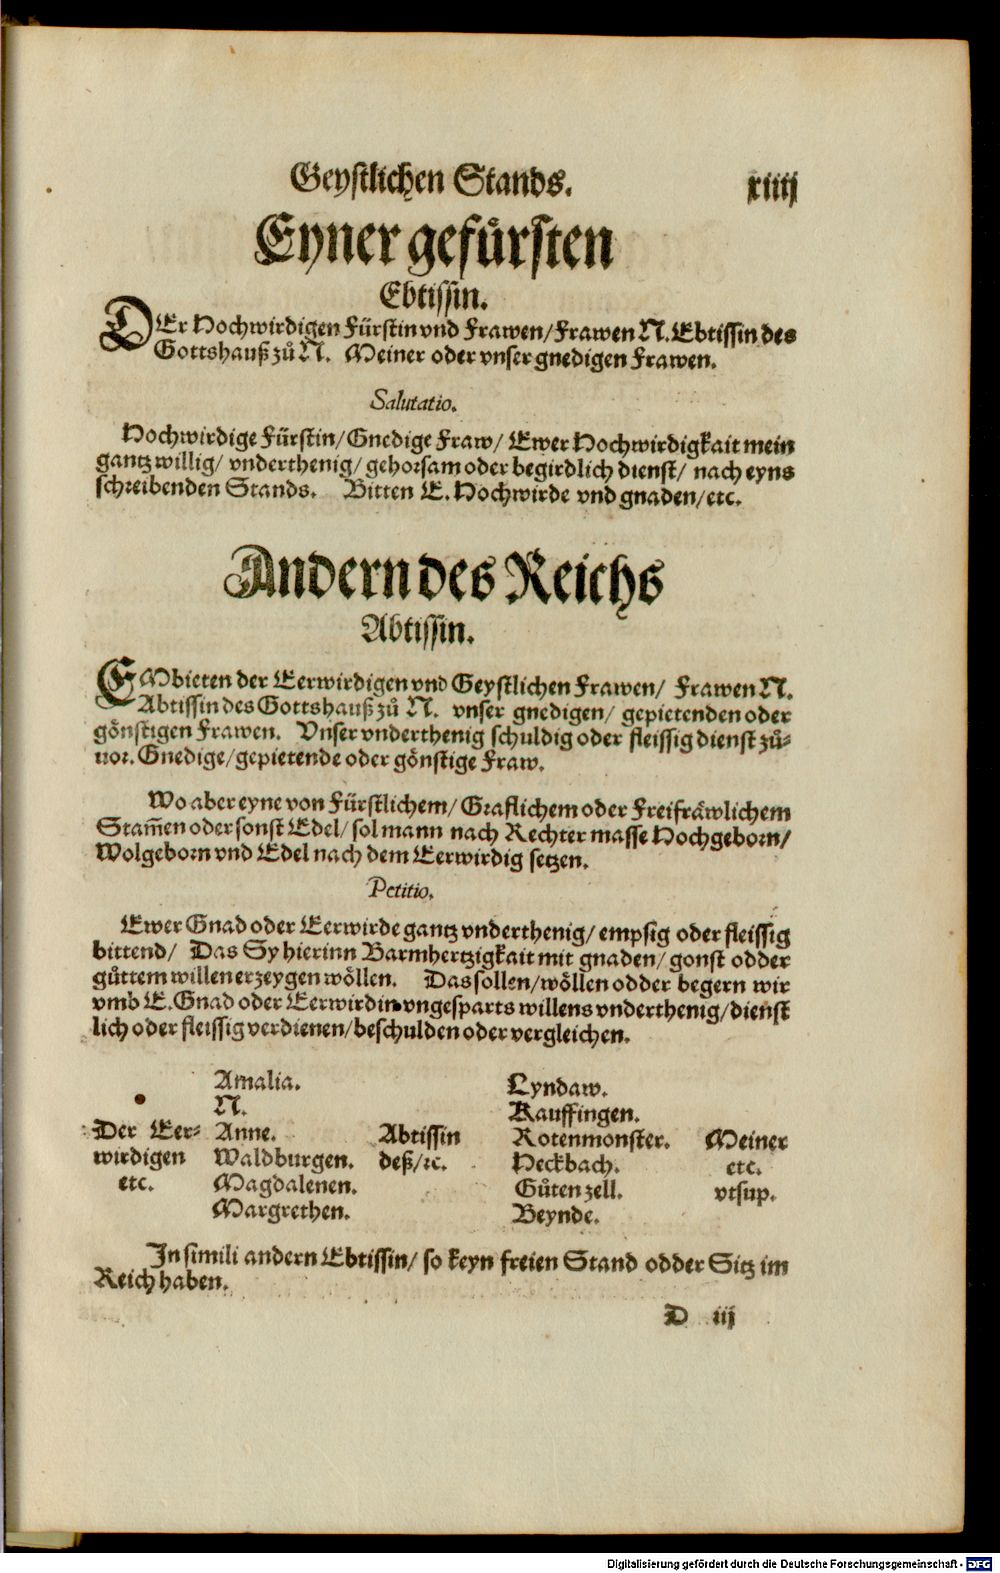 Geystlichen Stands. xiiij
Eyner gefürsten
Ebtissin.
DEr Hochwirdigen Fürstin vnd Frawen/ Frawen N. Ebtissin des
Gottshauß zů N. Meiner oder vnser gnedigen Frawen.
Salutatio.
Hochwirdige Fürstin/ Gnedige Fraw/ Ewer Hochwirdigkait mein
gantz willig/ vnderthenig/ gehorsam oder begirdlich dienst/ nach eyns
schreibenden Stands. Bitten E. Hochwirde vnd gnaden/ etc.
Andern des Reichs
Abtissin.
EMbieten der Eerwirdigen vnd Geystlichen Frawen/ Frawen N.
Abtissin des Gottshauß zů N. vnser gnedigen/ gepietenden oder
gönstigen Frawen. Vnser vnderthenig schuldig oder fleissig dienst zů-
uor. Gnedige/ gepietende oder gönstige Fraw.
Wo aber eyne von Fürstlichem/ Graflichem oder Freifräwlichem
Stam̃en oder sonst Edel/ sol mann nach Rechter masse Hochgeborn/
Wolgeborn vnd Edel nach dem Eerwirdig setzen.
Petitio.
Ewer Gnad oder Eerwirde gantz vnderthenig/ empsig oder fleissig
bittend/ Das Sy hierinn Barmhertzigkait mit gnaden/ gonst odder
gůttem willen erzeygen wöllen. Das sollen/ wöllen odder begern wir
vmb E. Gnad oder Eerwirdin vngesparts willens vnderthenig/ dienst
lich oder fleissig verdienen/ beschulden oder vergleichen.
Amalia. Lyndaw.
N. Kauffingen.
Der Eer- Anne. Abtissin Rotenmonster. Meiner
wirdigen Waldburgen. deß/ ꝛc. Heckbach. etc.
etc. Magdalenen. Gůtenzell. vtsup.
Margrethen. Beynde.
In simili andern Ebtissin/ so keyn freien Stand odder Sitz im
Reich haben.
D iij
Digitalisierung gefördert durch die Deutsche Forschungsgemeinschaft - DFG